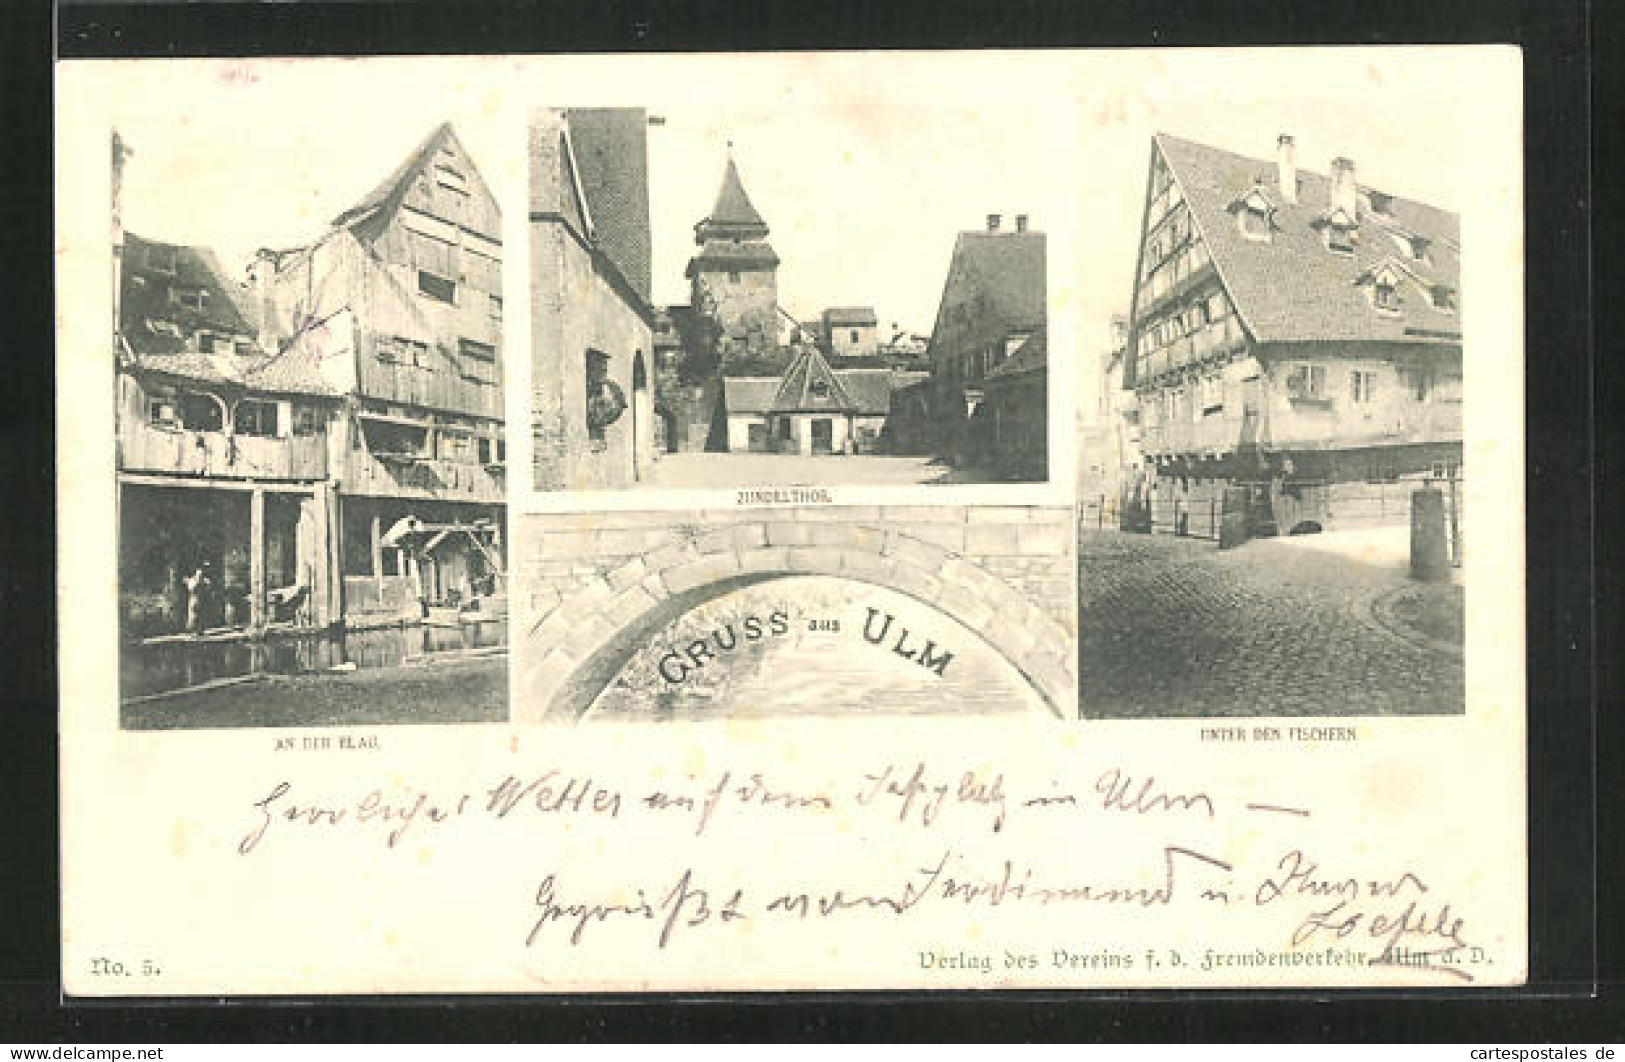 ZUNDELTHOR.
GRUSS aus ULM
AN DER BLAU.
UNTER DEN FISCHERN.
Herrliches Wetter auf dem in Ulm —
Gegrüßt von Ferdinand u.
No. 5.
Verlag des Vereins f. d. Fremdenverkehr, Ulm a. D.
www.cartespostales.de
cartespostales de